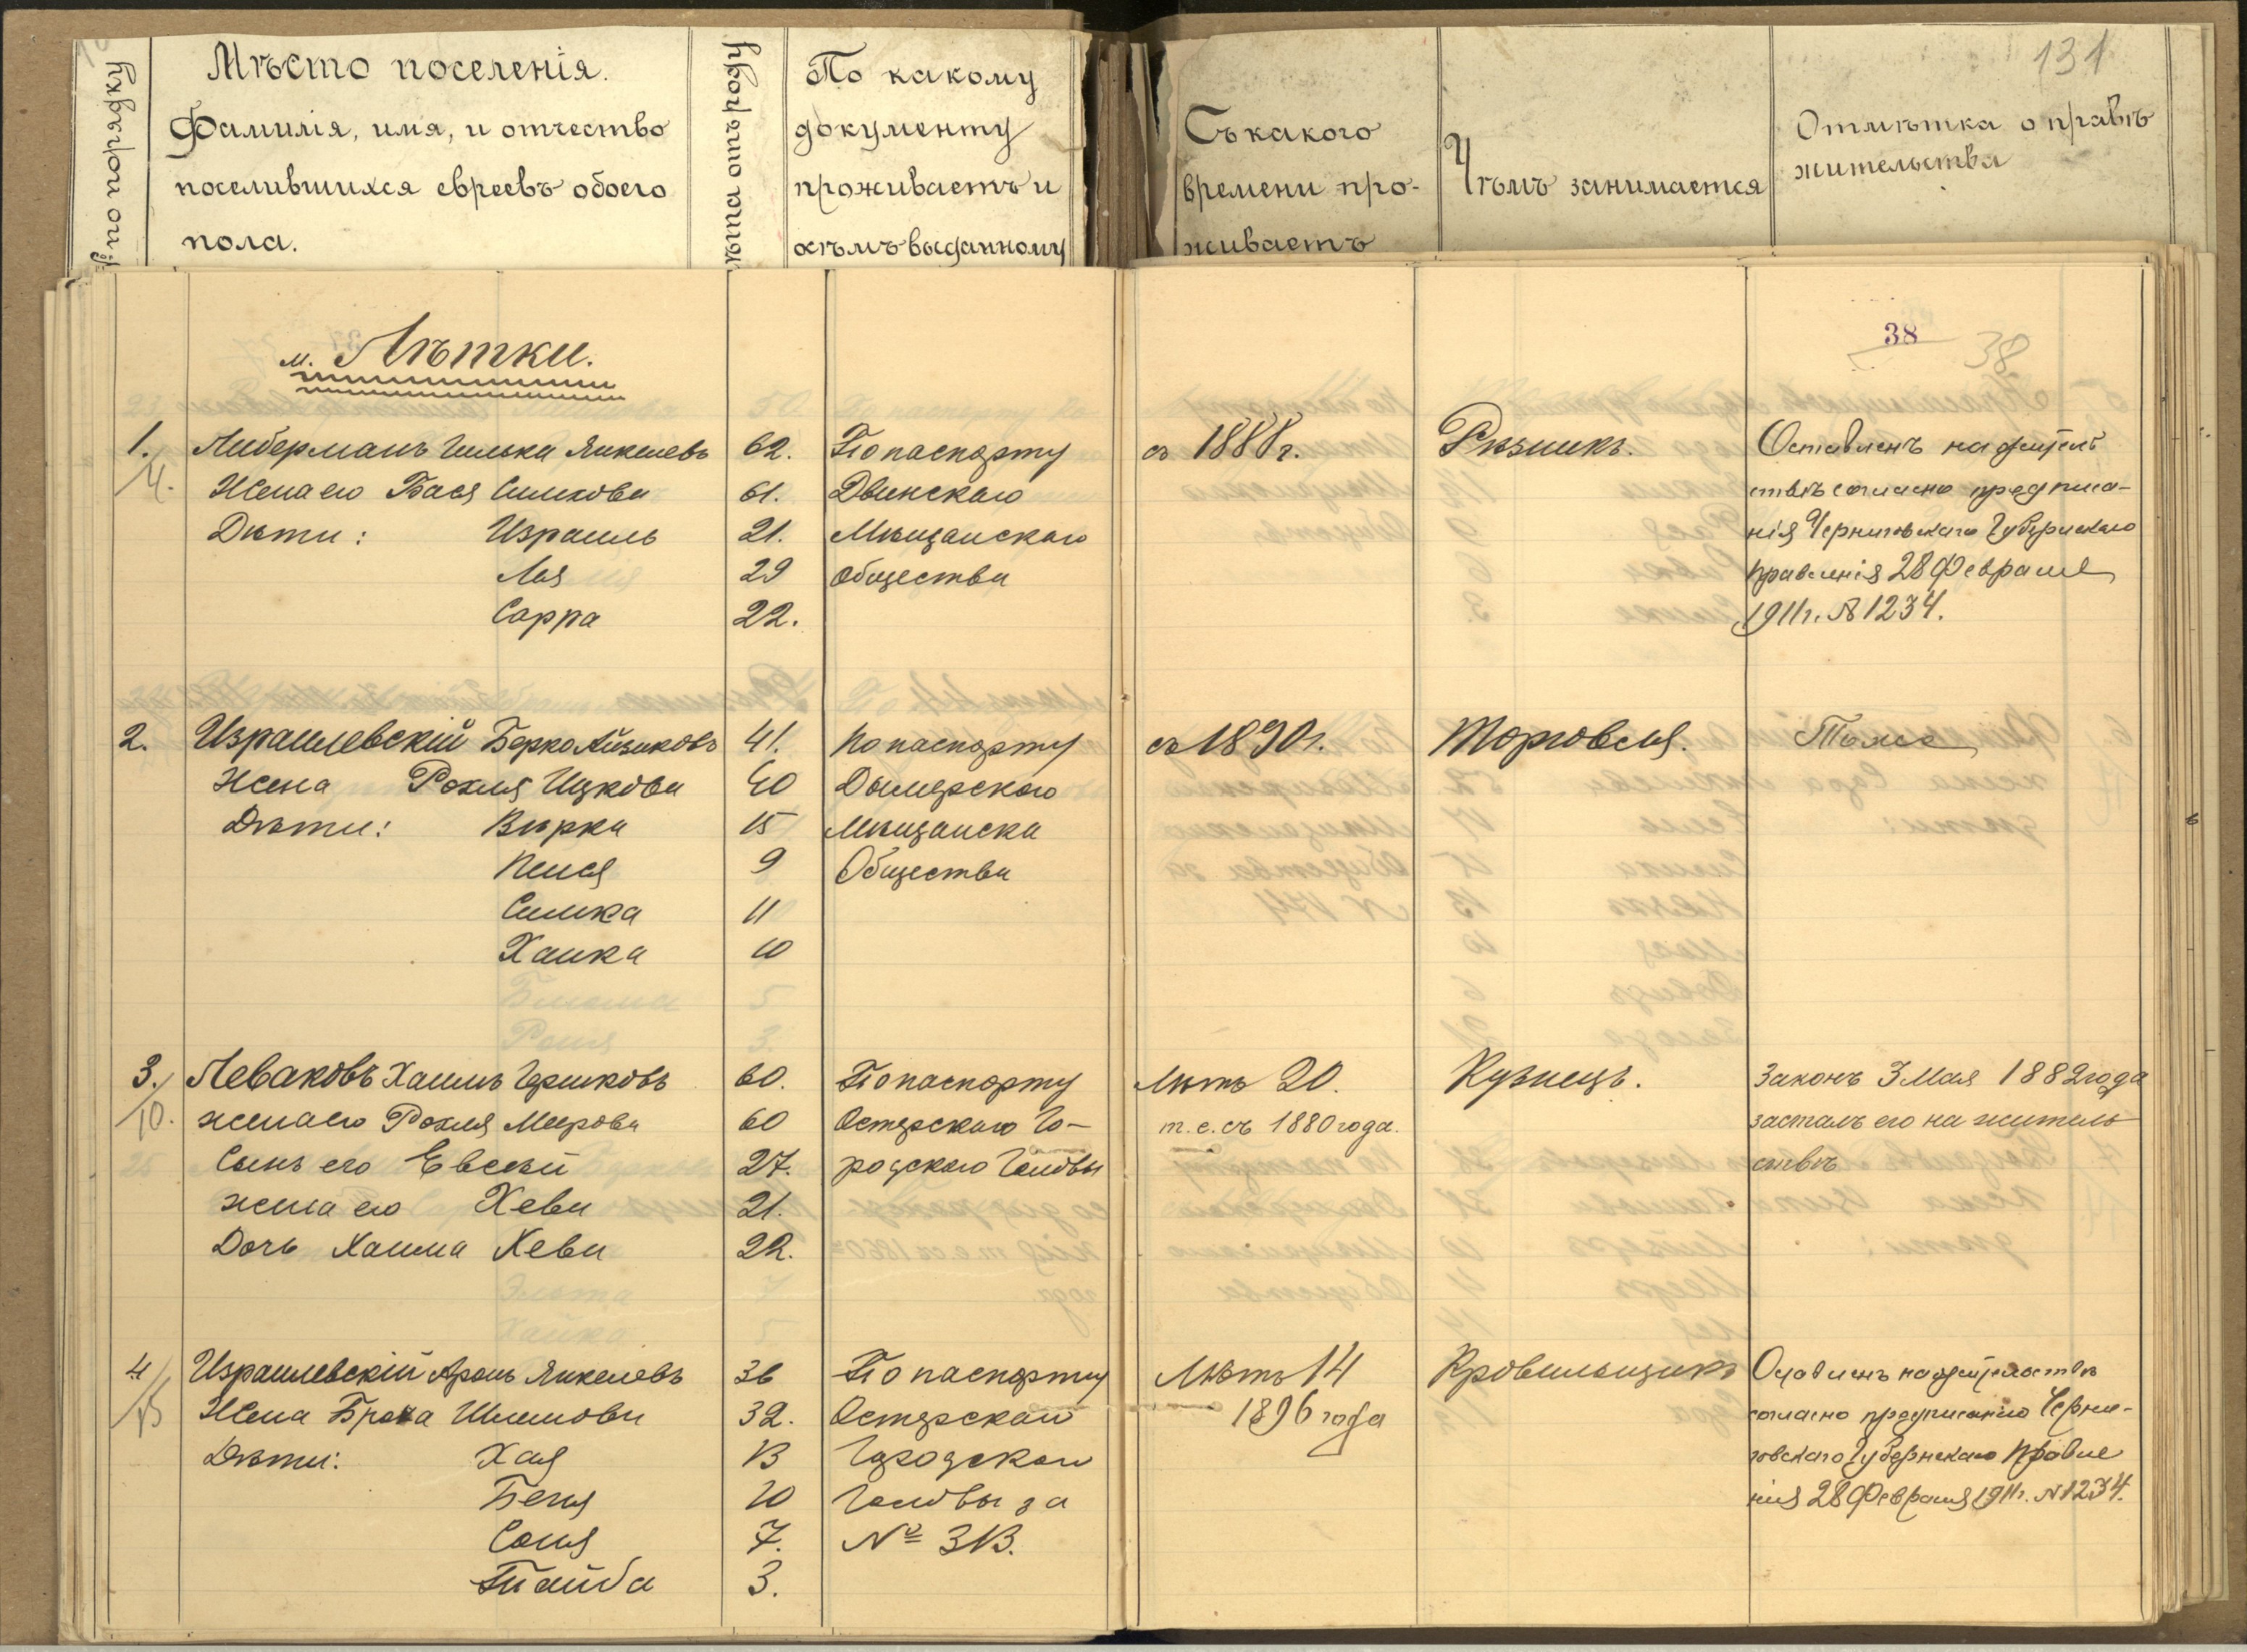 131
№ по порядку
Мѣсто поселенія.
Фамилія, имя, и отчество
поселившихся евреевъ обоего
пола.
Лѣта отъ роду
По какому
документу
проживаетъ и
кѣмъ выданному
Съ какого
времени про-
живаетъ
Чѣмъ занимается
Отмѣтка о правѣ
жительства
38
38
м. Лѣтки.
1.
4.
Либерманъ Гилька Янкелевъ 62. По паспорту съ 1888 г. Рѣзникъ. Оставленъ на житель
Жена его Бася Симхова 61. Двинскаго ствѣ согласно предписа-
Дѣти: Израиль 21. Мѣщанскаго нія Черниговскаго Губернскаго
Лея 29 общества Правленія 28 Февраля
Сарра 22. 1911 г. № 1234.
2. Израилевскій Берко Айзиковъ 41. По паспорту съ 1890 г. Торговля. Тоже
Жена Рохля Ицкова 40 Дымерскаго
Дѣти: Вѣрка 15 Мѣщанска
Пейся 9 Общества
Симка 11
Ханка 10
3.
10.
Леваковъ Хаимъ Гершковъ 60. По паспорту Лѣтъ 20. Кузнецъ. Законъ 3 Мая 1882 года
жена его Рохля Меерова 60 Остерскаго Го- т.е. съ 1880 года. засталъ его на житель
Сынъ его Евсей 27. родского Головы ствѣ
жена его Хева 21.
Дочь Хаима Хева 22.
4
15
Израилевскій Аронъ Янкелевъ 36 По паспорту Лѣтъ 14 Кровельщикъ Оставленъ на жительствѣ
Жена Броха Шлемова 32. Остерскаго 1896 года согласно предписанію Черни-
Дѣти: Хая 13 Городскаго говскаго Губернскаго Правле
Бегя 10 Головы за нія 28 Февраля 1911 г. № 1234.
Соня 7. № 313.
Тайба 3.